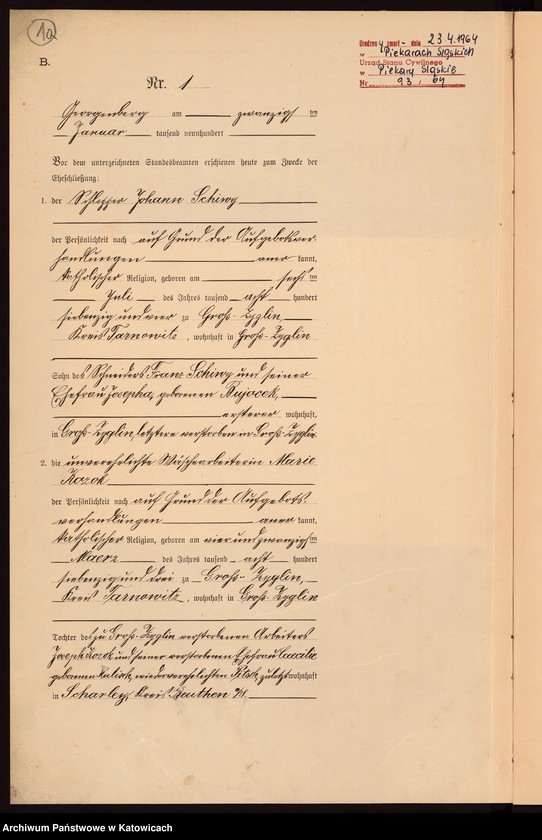 1a
Urodzon y zmarł - dnia 23.4.1964
w Piekarach Śląskich
Urząd Stanu Cywilnego
w Piekary Śląskie
Nr 93 / 64
B.
Nr. 1
Georgenberg am zwanzigsten
Januar tausend neunhundert
Vor dem unterzeichneten Standesbeamten erschienen heute zum Zwecke der
Eheschließung:
1. der Schlepper Johann Schiwy
der Persönlichkeit nach auf Grund der Aufgebotsver-
handlungen aner kannt,
katholischer Religion, geboren am sechsten
Juli des Jahres tausend acht hundert
siebenzig und vier zu Groß-Zyglin,
Kreis Tarnowitz, wohnhaft in Groß-Zyglin
Sohn des Schneiders Franz Schiwy und seiner
Ehefrau Josepha, geborenen Bujaczek,
ersterer wohnhaft,
in Groß-Zyglin, letztere verstorben in Groß-Zyglin.
2. die unverehelichte Wäschearbeiterin Marie
Kozok
der Persönlichkeit nach auf Grund der Aufgebots-
verhandlungen aner kannt,
katholischer Religion, geboren am vier und zwanzigsten
Maerz des Jahres tausend acht hundert
siebenzig und drei zu Groß-Zyglin,
Kreis Tarnowitz, wohnhaft in Groß-Zyglin
Tochter des zu Groß-Zyglin verstorbenen Arbeiters
Joseph Kozok und seiner verstorbenen Ehefrau Caecilie
geborenen, wiederverehelichten, zuletzt wohnhaft
in Scharley, Kreis Beuthen O/S.
Archiwum Państwowe w Katowicach